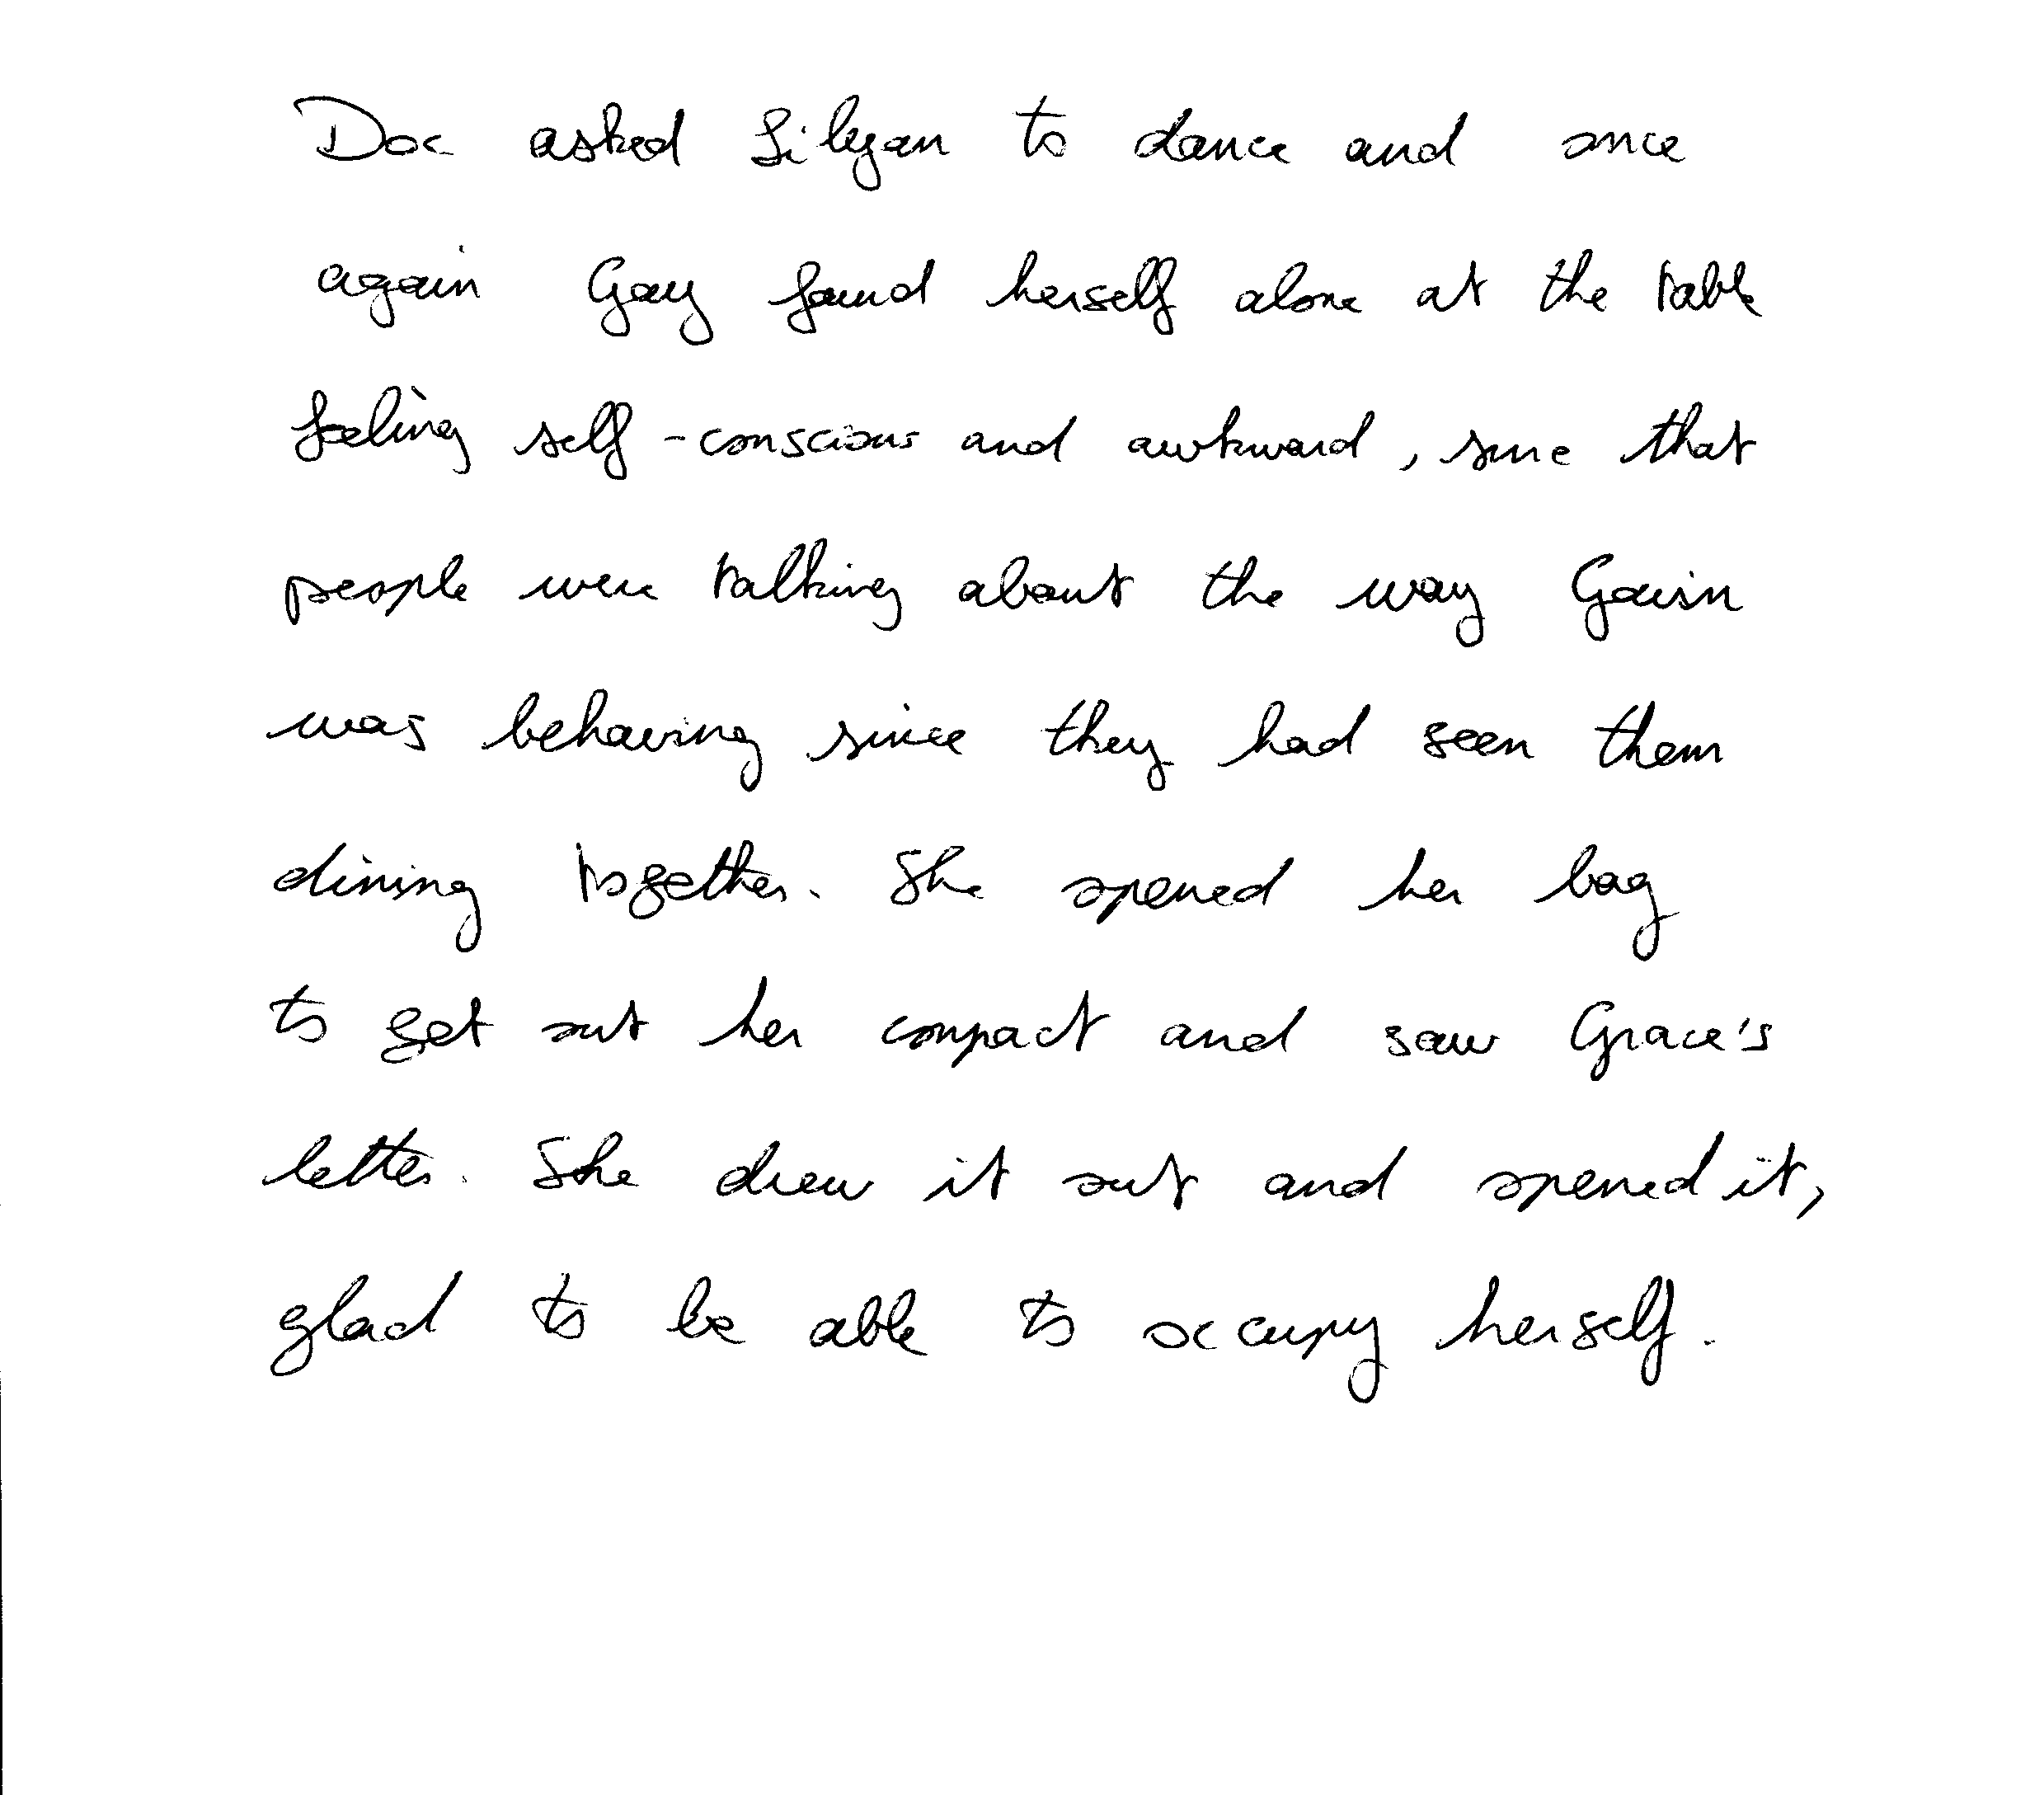 Doc asked Lilyan to dance and once
again Gay found herself alone at the table
feeling self-conscious and awkward, sure that
people were talking about the way Gavin
was behaving since they had seen them
dining together. She opened her bag
to get out her compact and saw Grace's
letter. She drew it out and opened it,
glad to be able to occupy herself.